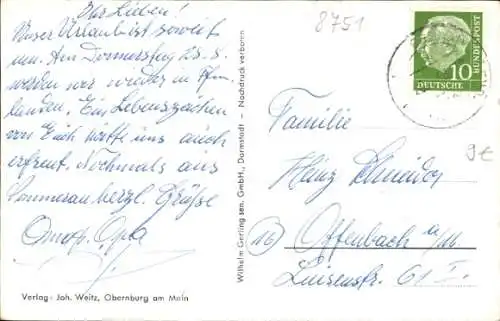 Ihr Lieben!
Unser Urlaub ist soweit
um. Am Donnerstag 23.5.
werden wir wieder in
landen. Ein Lebenszeichen
von Euch hätte uns auch
erfreut. Nochmals aus
Sommerau herzl. Grüße
Oma, Opa
Verlag: Joh. Weitz, Obernburg am Main
Wilhelm Gerling sen. GmbH., Darmstadt - Nachdruck verboten
8751
10
DEUTSCHE
BUNDESPOST
9€
Familie
Heinz Schneider
(16) Offenbach a/M.
Luisenstr. 61 I.